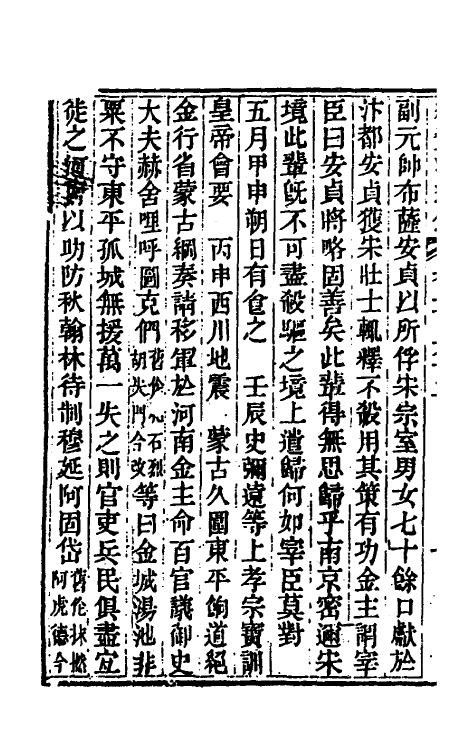 副元帥布薩安貞以所俘宋宗室男女七十餘口獻於
汴都安貞獲宋壯士輒釋不殺用其策有功金主謂宰
臣曰安貞將略固善矣此輩得無思歸乎南京密邇宋
境此輩旣不可盡殺驅之境上遣歸何如宰臣莫對
五月甲申朔日有食之　壬辰史彌遠等上孝宗寶訓
皇帝會要　丙申西川地震　蒙古久圍東平餉道絕
金行省蒙古綱奏請移軍於河南金主命百官議御史
大夫赫舍哩呼圖克們舊作紇石烈胡失門今改等曰金城湯池非
粟不守東平孤城無援萬一失之則官吏兵民俱盡宜
徙之河南以助防秋翰林待制穆延阿固岱舊作抹撚阿虎德今